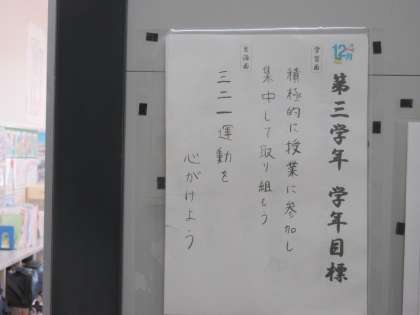 12月
第三学年 学年目標
学習面
積極的に授業に参加し
集中して取り組もう
生活面
三二一運動を
心がけよう